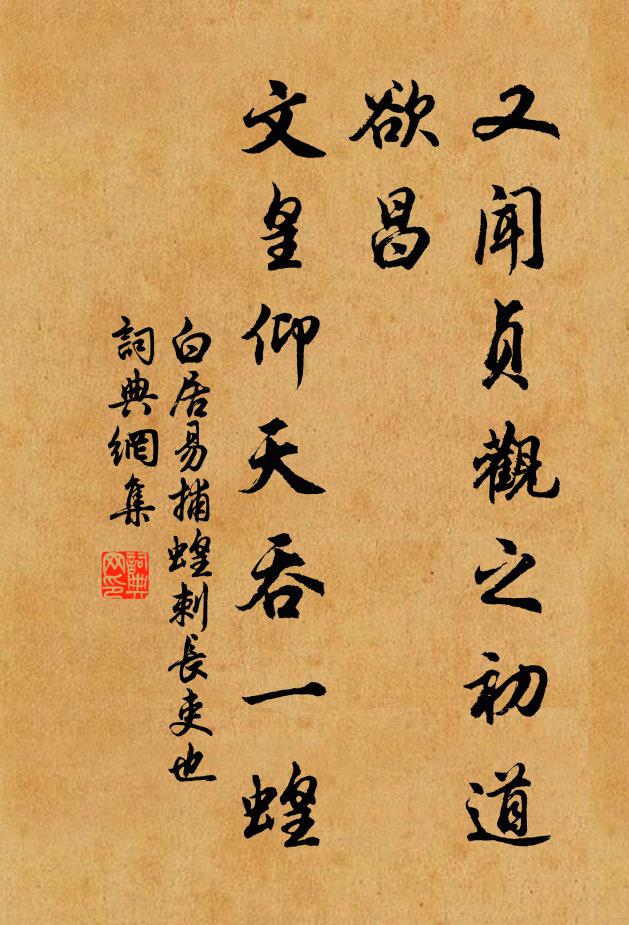 又聞貞觀之初道
欲昌
文皇仰天吞一蝗
白居易捕蝗刺長吏也
詞典網集
詞典
网印